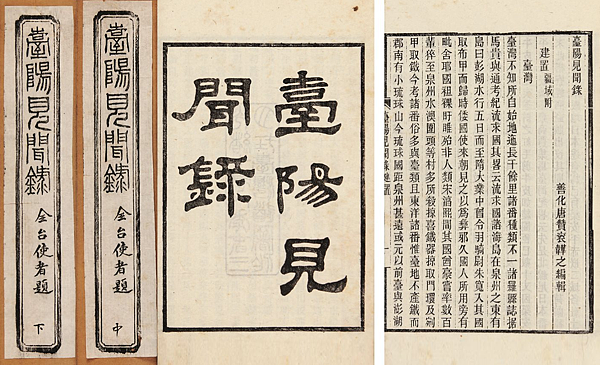 臺陽見聞錄
全台使者題
下
臺陽見聞錄
全台使者題
中
臺陽見
聞錄
臺陽見聞錄
善化唐贊袞韡之編輯
建置 疆域附
臺灣
臺灣不知所自始地逾長千餘里諸番種類不一諸羅縣志據
馬貴與通考紀流求國其畧云流求國諸海島在泉州之東有
島曰彭湖水行五日而至隋大業中曾令羽騎尉朱寬入其國
取布甲而歸時倭國使來朝見之以爲彝邪久國人所用旁有
毗舍耶國袒裸盱睢殆非人類宋淳熙間其國酋豪嘗率數百
輩猝至泉州水澳圍頭等村多所殺掠喜鐵器掠取門環及剜
甲取鐵今考諸番俗多與臺類且東洋諸番惟臺地不產鐵而
郡南有小琉球山今琉球國距泉州甚遠或元以前臺與彭湖